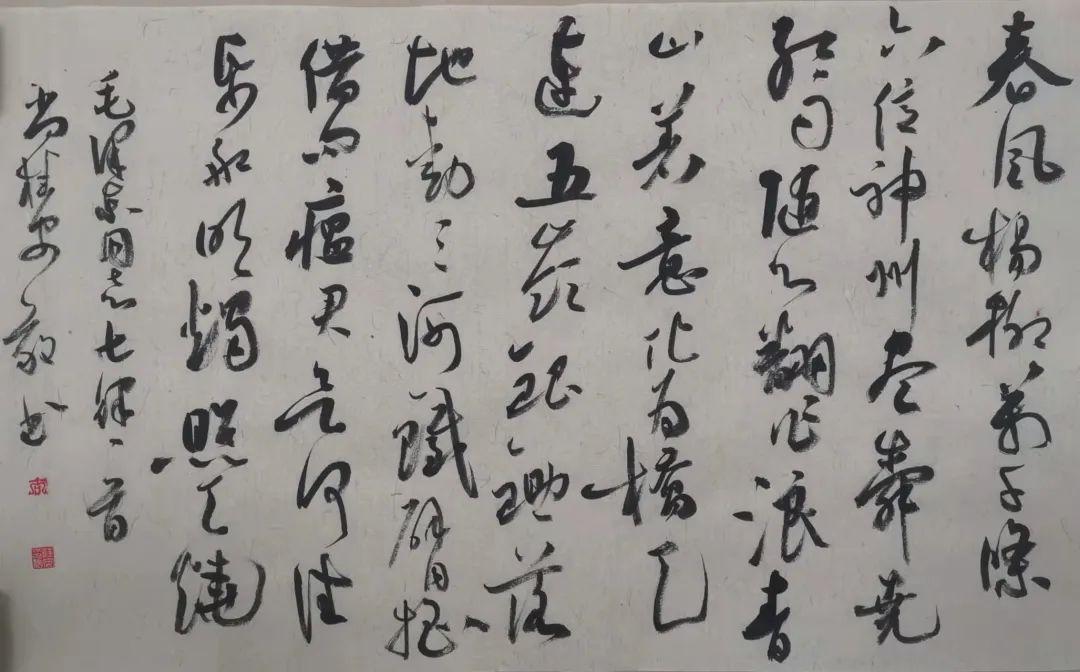 春風楊柳萬千條
六億神州尽舜堯
紅雨随心翻作浪青
山着意化为橋天
連五岭銀鋤落
地動三河鐵臂摇
借问瘟君欲何往
纸船明燭照天燒
毛泽东同志七律一首
尚桂安敬书